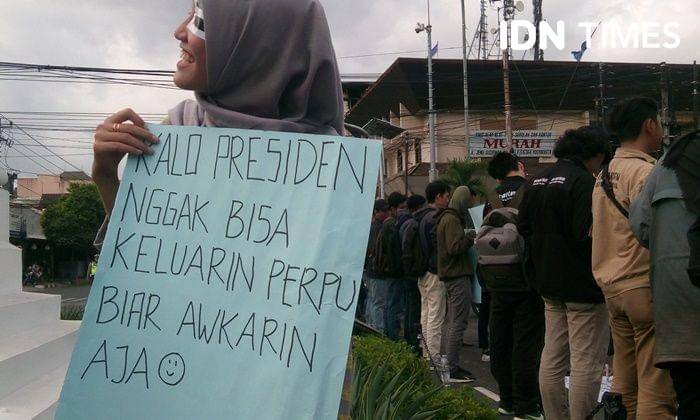 IDN TIMES
KALO PRESIDEN
NGGAK BISA
KELUARIN PERPU
BIAR AWKARIN
AJA ☺
MURAH